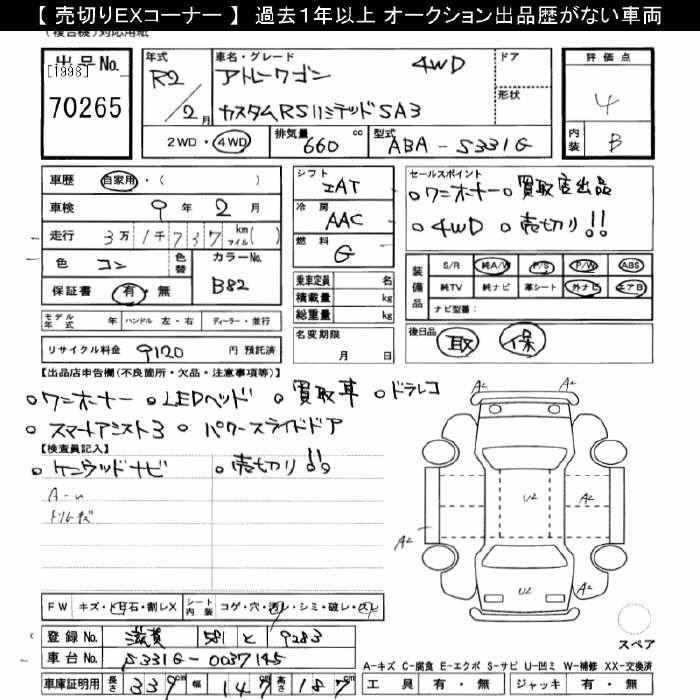 【 売切りEXコーナー 】 過去1年以上 オークション出品歴がない車両
(複合機)対応用紙
出品No.
[1998]
70265
年式
R2/2月
車名・グレード
アトレーワゴン 4WD
カスタムRSリミテッドSA3
ドア
形状
評価点
4
内装
B
2WD・4WD
排気量
660 cc
型式
ABA - S331G
車歴 自家用・( )
車検 9年2月
走行 3万1千737 km マイル( )
色 コン
色替
カラーNo.
B82
保証書 有・無
シフト
IAT
冷房
AAC
燃料
G
セールスポイント
○ワンオーナー ○買取店出品
○4WD ○売切り!!
乗車定員 名
積載量 kg
総重量 kg
装備品
S/R 純A/W P/S P/W ABS
純TV 純ナビ 革シート 外ナビ エアB
ナビ型番:
モデル年式 年 ハンドル 左・右 ディーラー・並行
名変期限
月 日
後日品
取 保
リサイクル料金 9120 円 預託済
【出品店申告欄(不良箇所・欠品・注意事項等)】
○ワンオーナー ○LEDヘッド ○買取車 ○ドラレコ
○スマートアシスト3 ○パワースライドドア
【検査員記入】
○ケンウッドナビ ○売切り!!
A-u
A2 A2
U2 A2
A2
U2
A2
FW キズ・飛石・割レX
シート内装 コゲ・穴・汚レ・シミ・破レ・スレ
登録No. 滋賀 581 と 9283
車台No. S331G-0037145
車庫証明用 長さ 339cm 幅 147cm 高さ 187cm
スペア
A-キズ C-腐食 E-エクボ S-サビ U-凹ミ W-補修 XX-交換済
工具 有・無 ジャッキ 有・無